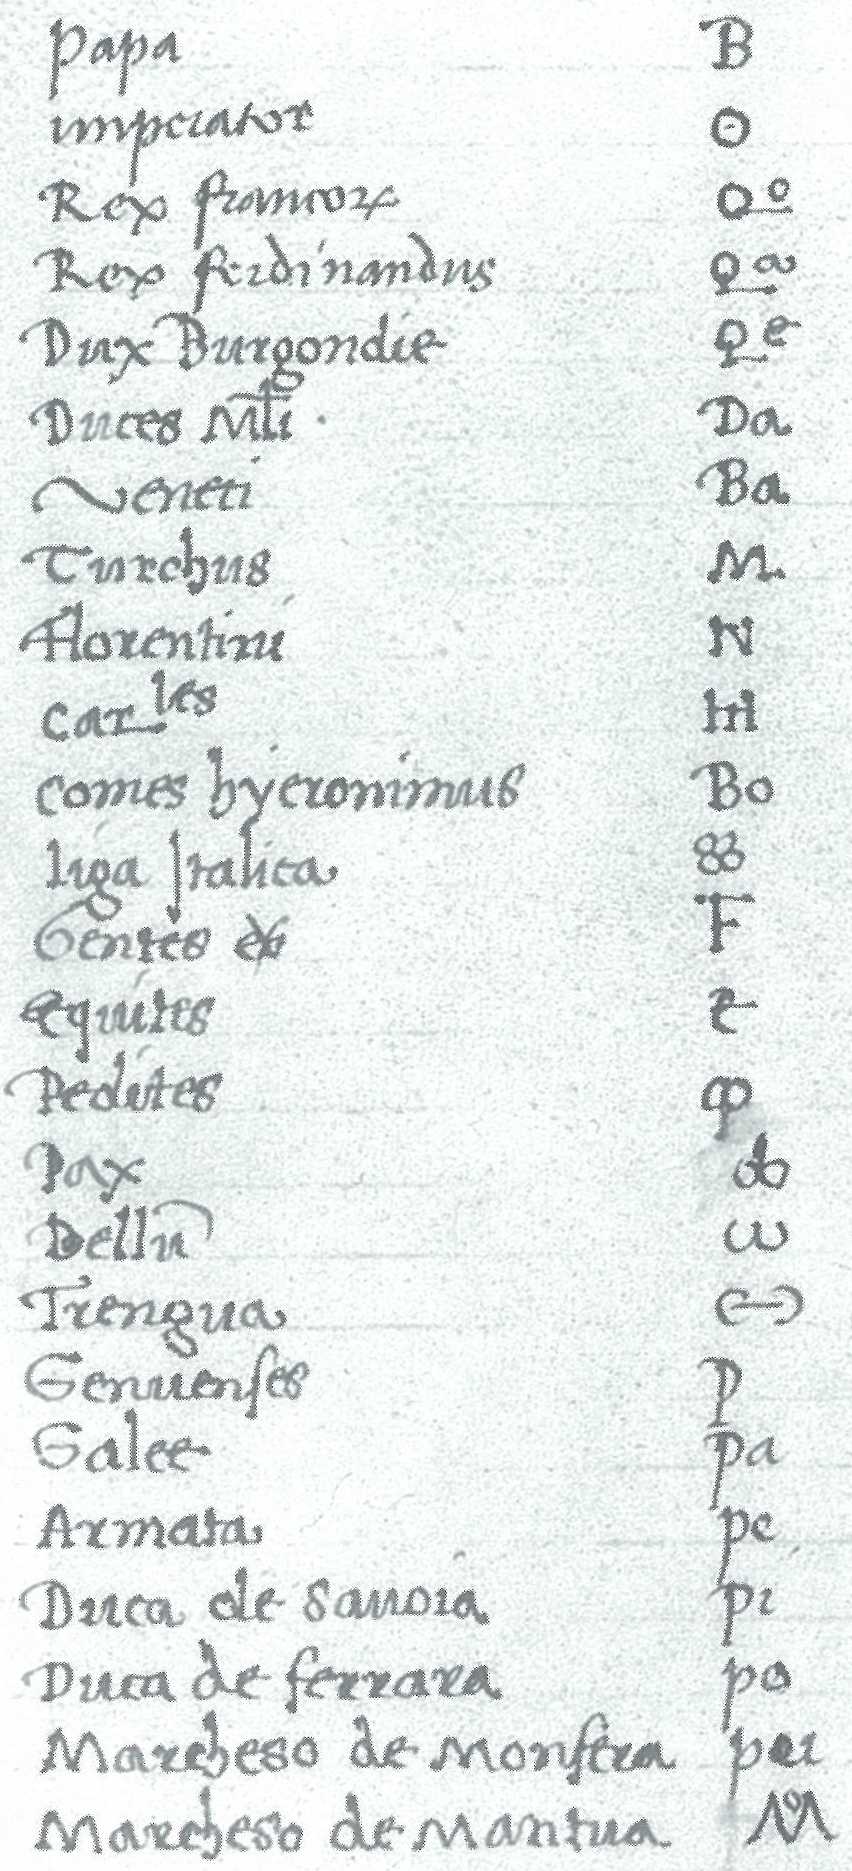 Papa B
imperator ʘ
Rex francoꝝ oº
Rex ferdinandus
Dux Burgondie
Duces Mli Da
Veneti Ba
Turchus M
Florentini N
carles
comes hyeronimus Bo
liga Italica 88
Gentes F
equites
Pedites
Pax
Bellū ω
Trengua (-)
Genuenses p
Galee pa
Armata pe
Duca de sauoia pi
Duca de ferrara po
Marcheso de monfera pu
Marcheso de Mantua